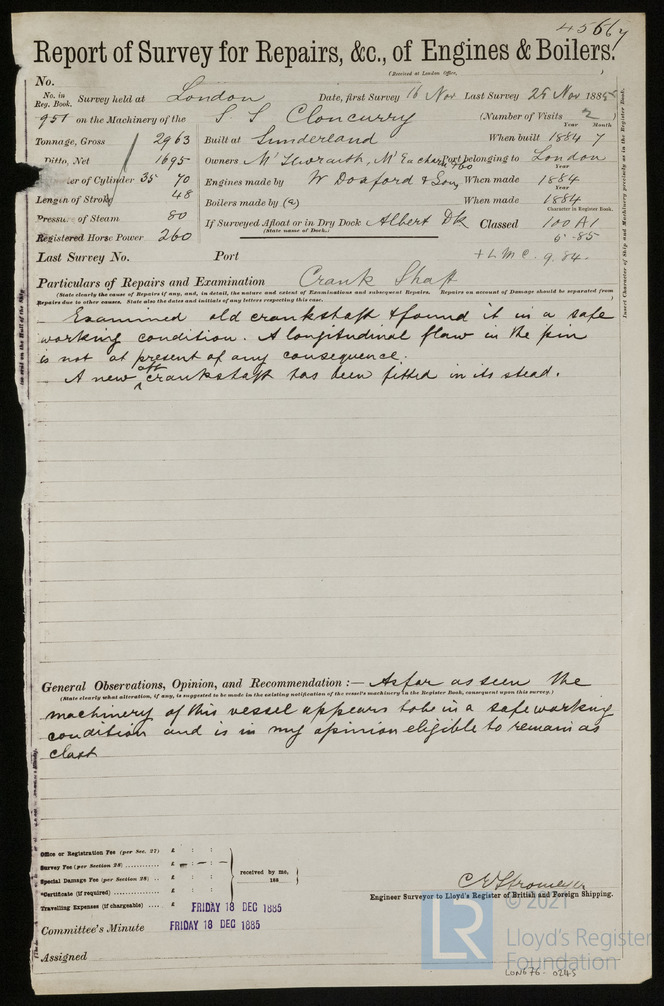 45667
Report of Survey for Repairs, &c., of Engines & Boilers.
(Received at London Office, )
No.
No. in Reg. Book. Survey held at London Date, first Survey 16 Nov Last Survey 25 Nov 1885
951 on the Machinery of the S S Cloncurry (Number of Visits 2 )
Tonnage, Gross 2963 Built at Sunderland When built 1884 Year 7 Month
Ditto, Net 1695 Owners Port belonging to London
of Cylinder 35 70 Engines made by W Doxford & Sons When made 1884 Year
Length of Stroke 48 Boilers made by (a) When made 1884 Year
Pressure of Steam 80 If Surveyed Afloat or in Dry Dock Albert Dk Classed 100 A1 Character in Register Book.
(State name of Dock.)
Registered Horse Power 260 5-85
Last Survey No. Port + L M C. 9.84.
Particulars of Repairs and Examination Crank Shaft
(State clearly the cause of Repairs if any, and, in detail, the nature and extent of Examinations and subsequent Repairs. Repairs on account of Damage should be separated from
Repairs due to other causes. State also the dates and initials of any letters respecting this case. )
Examined old crankshaft & found it in a safe
working condition. A longitudinal flaw in the pin
is not at present of any consequence.
A new aft crankshaft has been fitted in its stead.
General Observations, Opinion, and Recommendation :— As far as seen the
(State clearly what alteration, if any, is suggested to be made in the existing notification of the vessel's machinery in the Register Book, consequent upon this survey.)
machinery of this vessel appears to be in a safe working
condition and is in my opinion eligible to remain as
clast
Office or Registration Fee (per Sec. 27) £ : :
Survey Fee (per Section 28) £ – : – : –
Special Damage Fee (per Section 28) £ : : received by me,
*Certificate (if required) £ : : 188
Travelling Expenses (if chargeable) £ : :
FRIDAY 18 DEC 1885
C E Stromeyer
Engineer Surveyor to Lloyd's Register of British and Foreign Shipping.
Committee's Minute FRIDAY 18 DEC 1885
Assigned
Insert Character of Ship and Machinery precisely as in the Register Book.
LR
© 2021
Lloyd's Register
Foundation
LON676-0245